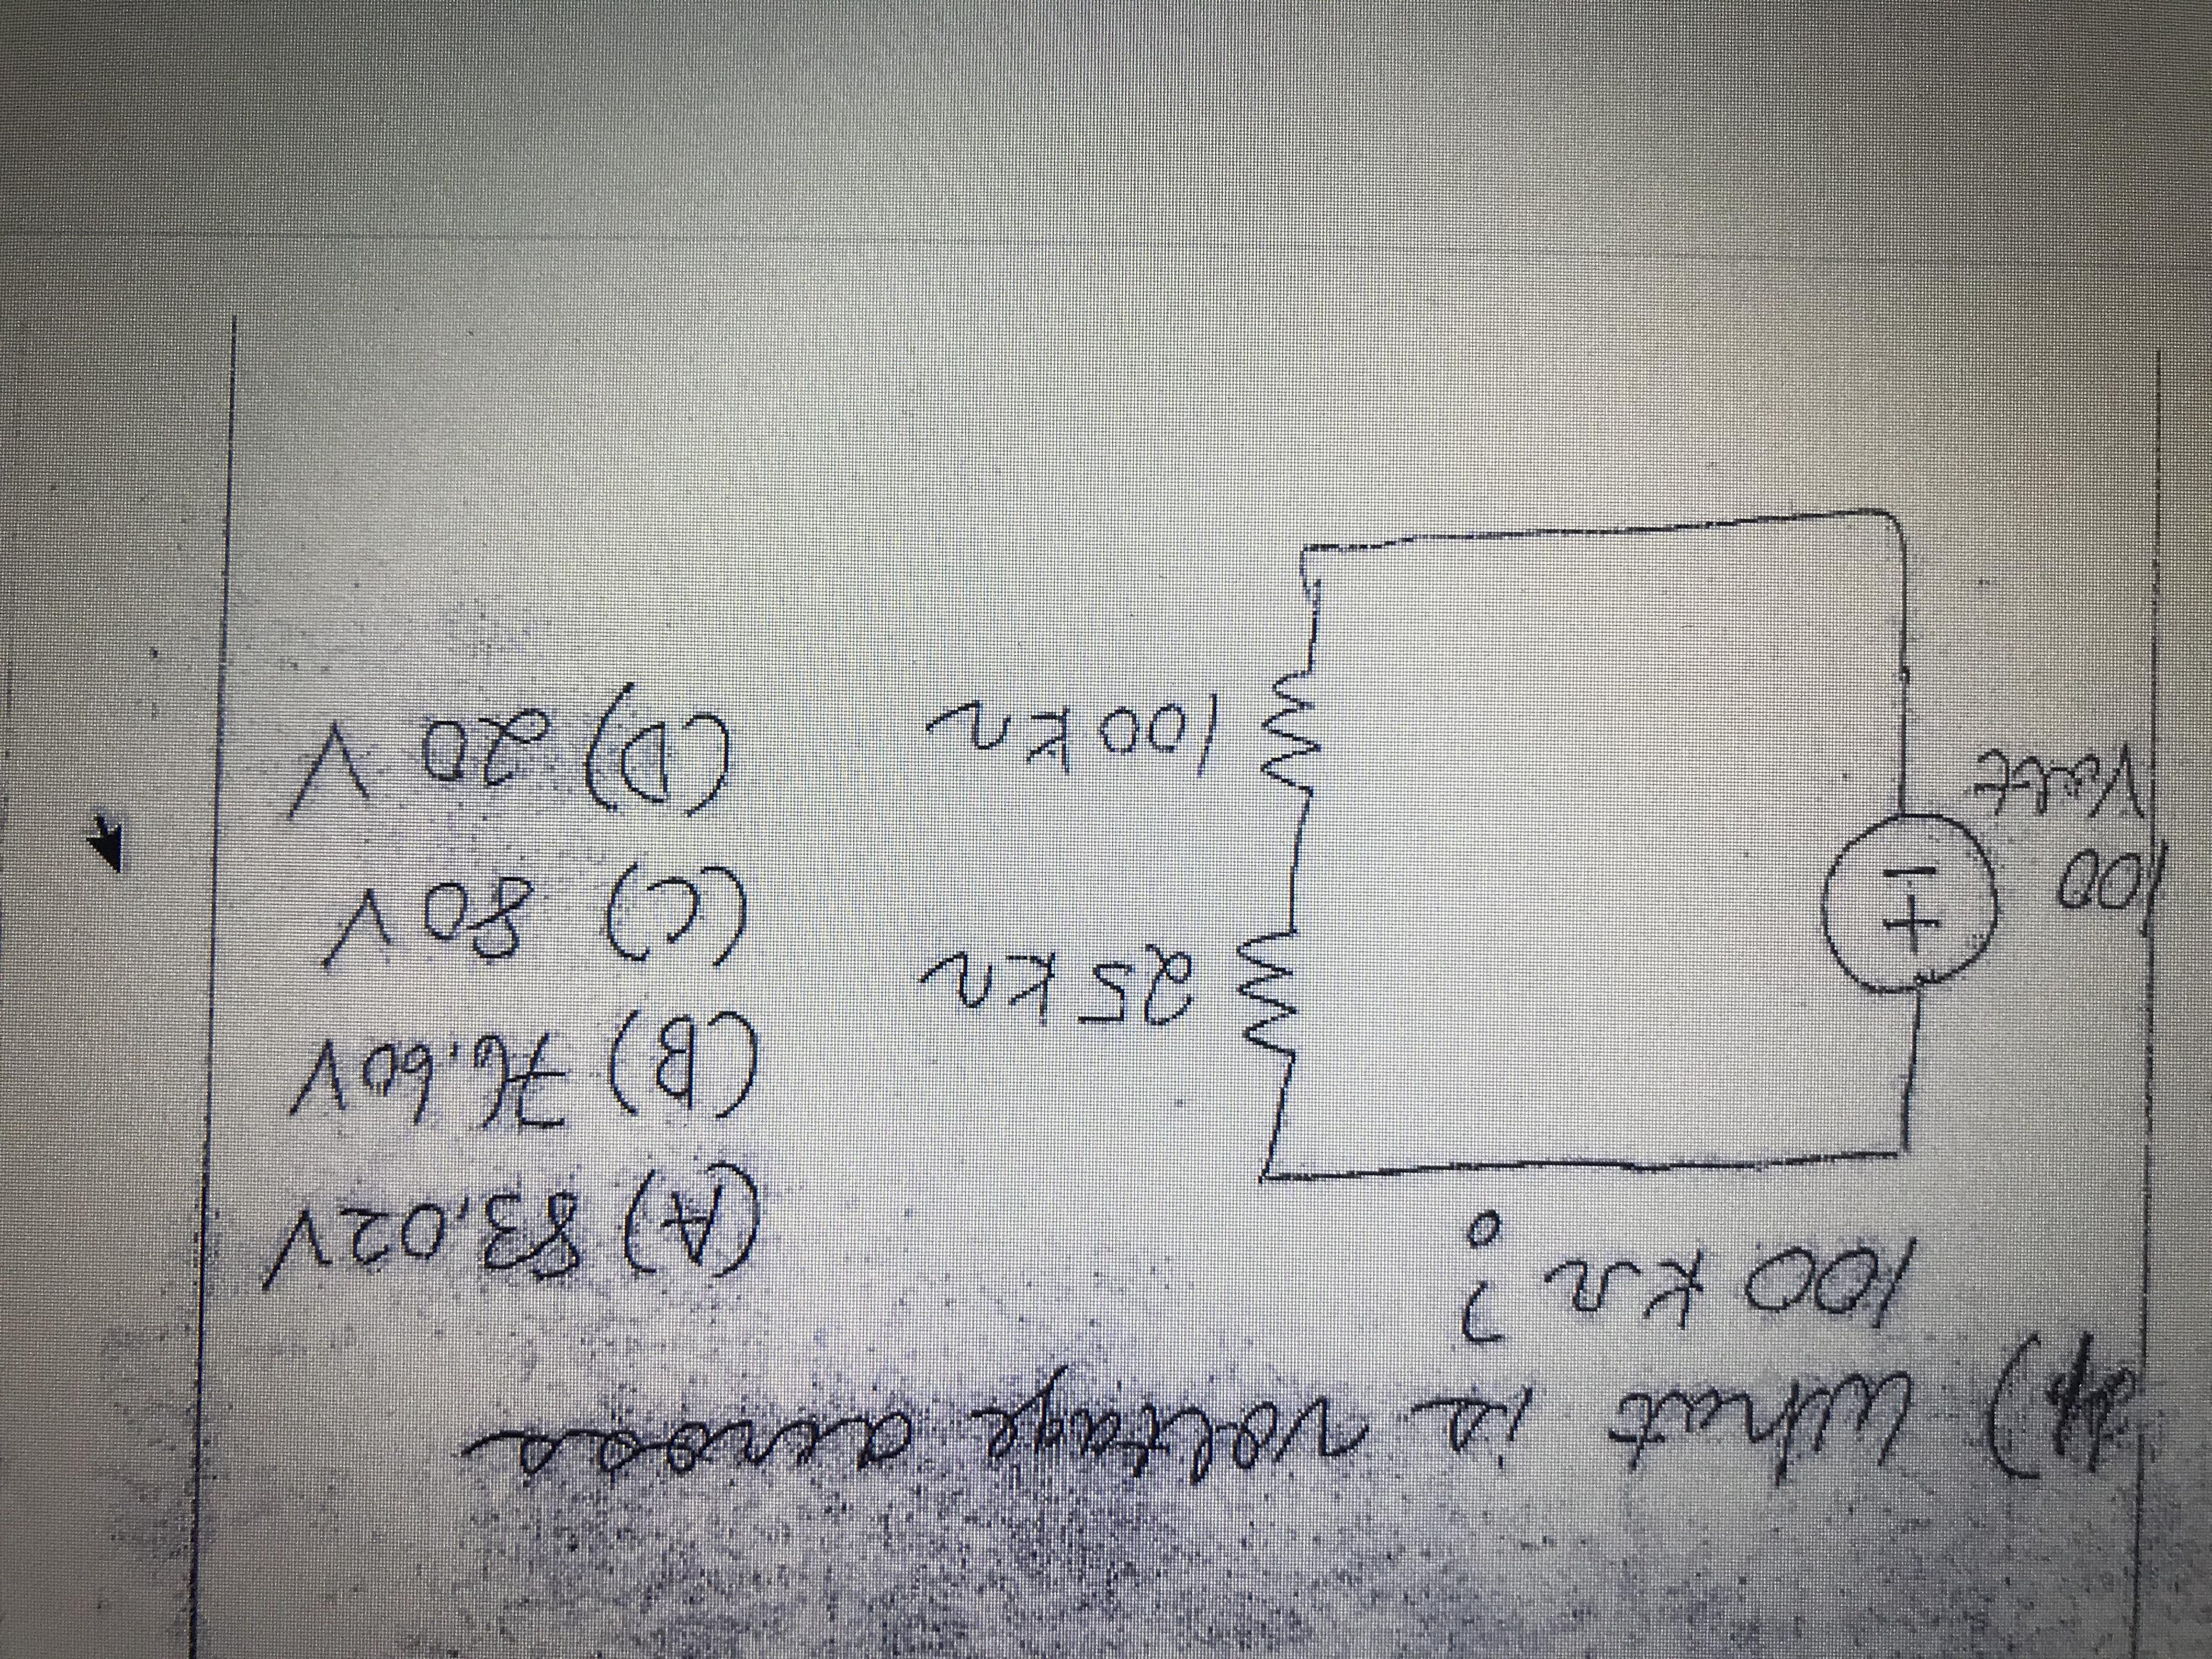 What is voltage across
100 kΩ ?
(A) 83.02V
(B) 76.60V
(C) 80V
(D) 20 V
25 kΩ
100 kΩ
100
Volt